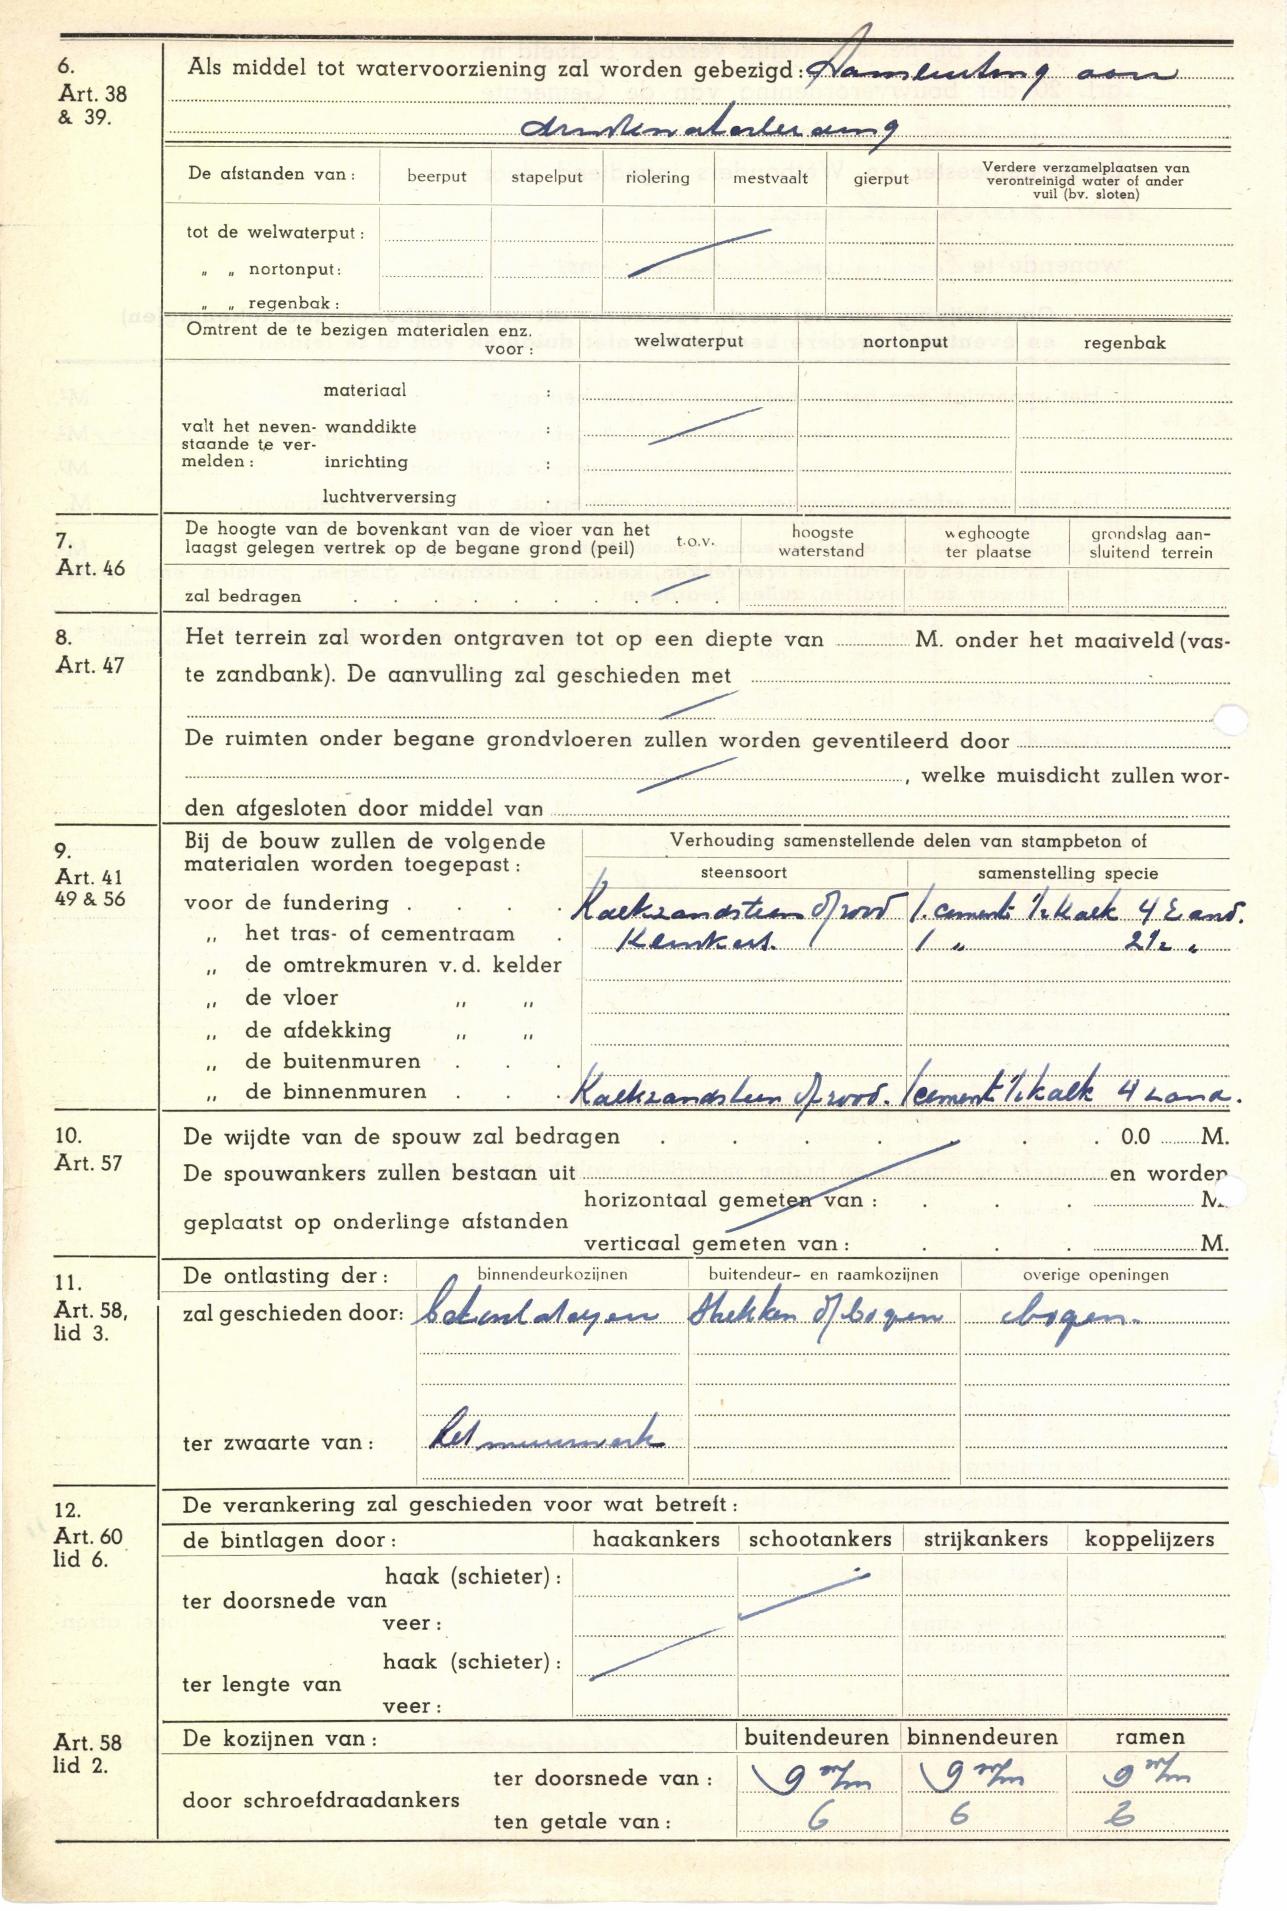 6.
Art. 38
& 39.
Als middel tot watervoorziening zal worden gebezigd: Aansluiting aan
drinkwaterleiding
De afstanden van: beerput stapelput riolering mestvaalt gierput Verdere verzamelplaatsen van
verontreinigd water of ander
vuil (bv. sloten)
tot de welwaterput:
„ „ nortonput:
„ „ regenbak:
Omtrent de te bezigen materialen enz.
voor: welwaterput nortonput regenbak
materiaal :
valt het neven- wanddikte :
staande te ver-
melden: inrichting :
luchtverversing .
7.
Art. 46
De hoogte van de bovenkant van de vloer van het
laagst gelegen vertrek op de begane grond (peil) t.o.v. hoogste
waterstand weghoogte
ter plaatse grondslag aan-
sluitend terrein
zal bedragen . . . . . . . . . .
8.
Art. 47
Het terrein zal worden ontgraven tot op een diepte van M. onder het maaiveld (vas-
te zandbank). De aanvulling zal geschieden met
De ruimten onder begane grondvloeren zullen worden geventileerd door
, welke muisdicht zullen wor-
den afgesloten door middel van
9.
Art. 41
49 & 56
Bij de bouw zullen de volgende
materialen worden toegepast:
Verhouding samenstellende delen van stampbeton of
steensoort samenstelling specie
voor de fundering . . . . Kalkzandsteen of rood 1 cement 1/2 kalk 4 zand.
„ het tras- of cementraam . 1 „ 2 1/2 „
„ de omtrekmuren v.d. kelder
„ de vloer „ „
„ de afdekking „ „
„ de buitenmuren . . .
„ de binnenmuren . . . Kalkzandsteen of rood. 1 cement 1/2 kalk 4 zand.
10.
Art. 57
De wijdte van de spouw zal bedragen . . . . . . . 0.0 M.
De spouwankers zullen bestaan uit en worden
horizontaal gemeten van: . . . M.
geplaatst op onderlinge afstanden
verticaal gemeten van: . . . M.
11.
Art. 58,
lid 3.
De ontlasting der: binnendeurkozijnen buitendeur- en raamkozijnen overige openingen
zal geschieden door: betonlateyen strekken of bogen bogen.
ter zwaarte van: het muurwerk
12.
Art. 60
lid 6.
De verankering zal geschieden voor wat betreft:
de bintlagen door: haakankers schootankers strijkankers koppelijzers
haak (schieter):
ter doorsnede van
veer:
haak (schieter):
ter lengte van
veer:
Art. 58
lid 2.
De kozijnen van: buitendeuren binnendeuren ramen
ter doorsnede van: 9 m/m 9 m/m 9 m/m
door schroefdraadankers
ten getale van: 6 6 6